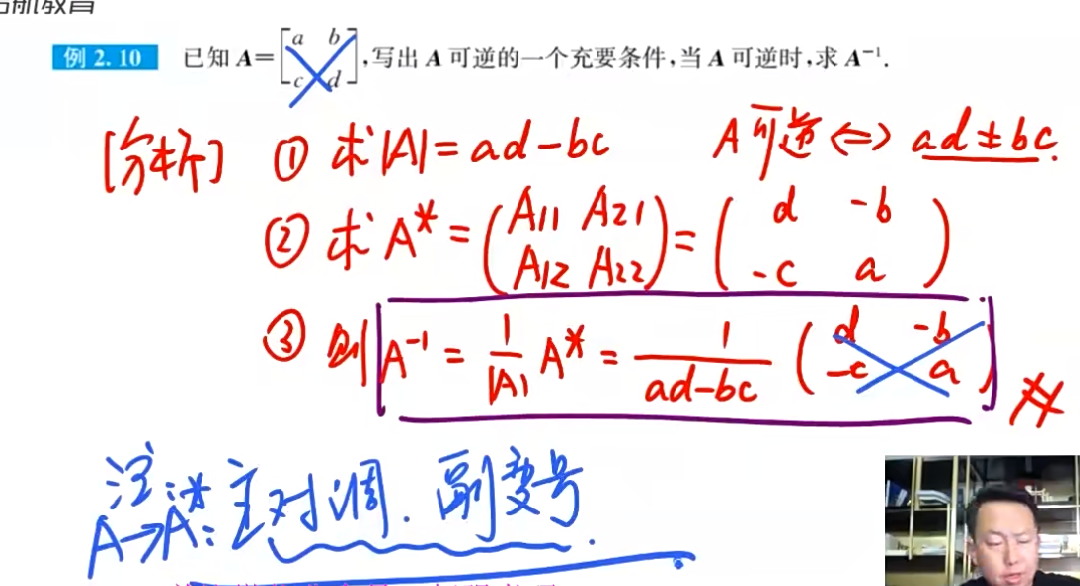 启航教育
例 2.10 已知 A=[a b c d],写出 A 可逆的一个充要条件,当 A 可逆时,求 A⁻¹.
[分析] ① 求|A|=ad-bc A可逆⇔ad≠bc.
② 求A*=(A11 A21 A12 A22)=(d -b -c a)
③ 则A⁻¹=1/|A| A*=1/(ad-bc) (d -b -c a) #
注:
A→A*:主对调.副变号.